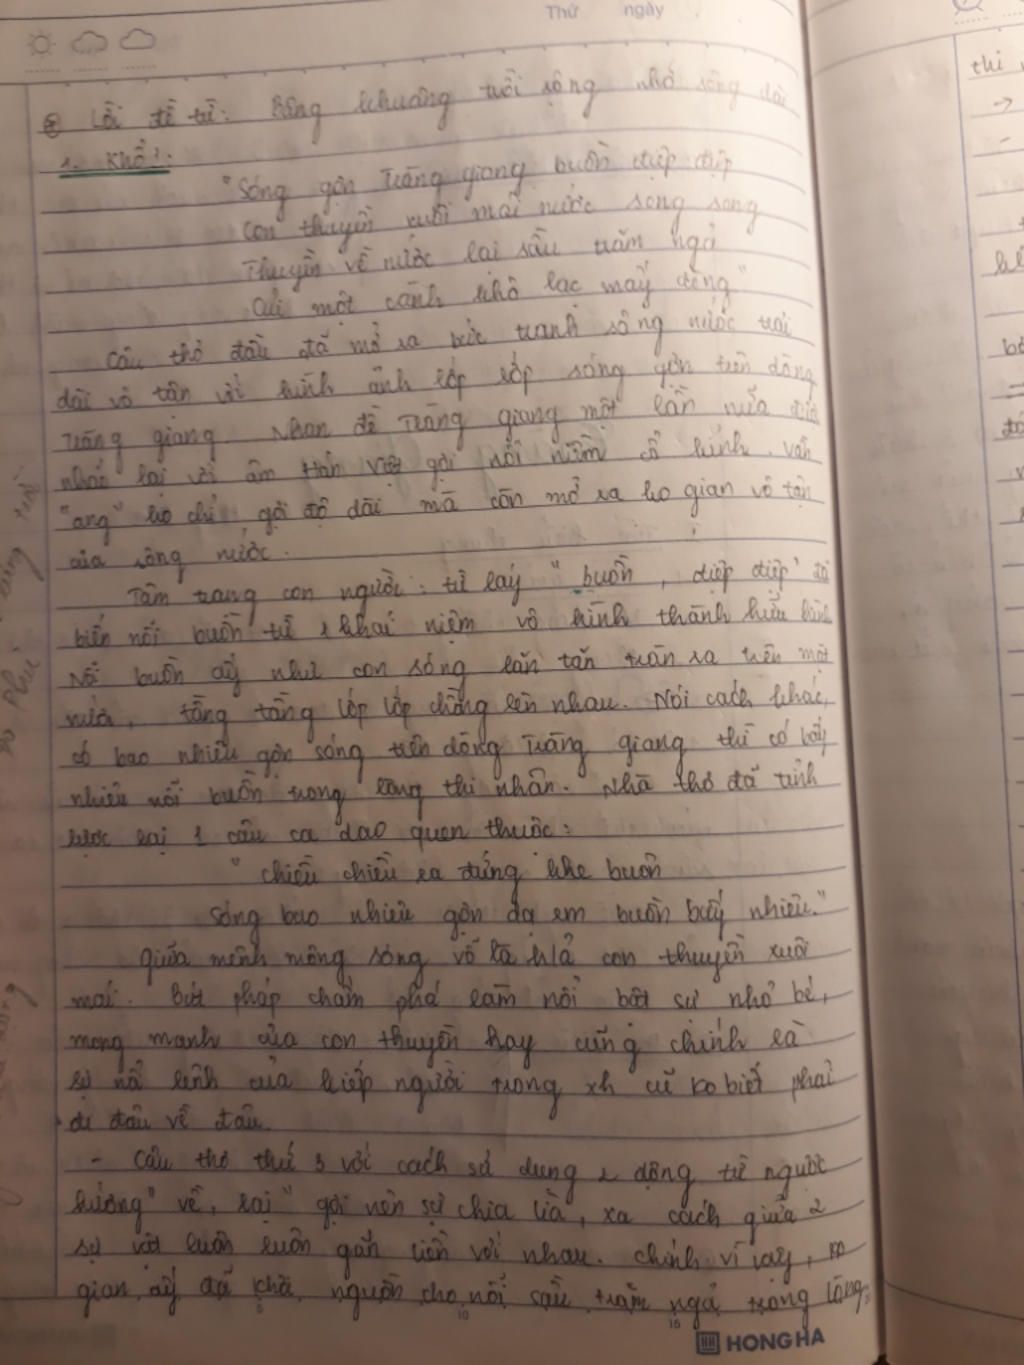 Thứ ngày
Lời đề từ: Bâng khuâng trời rộng nhớ sông dài
1. Khổ 1:
"Sóng gợn Tràng giang buồn điệp điệp
Con thuyền xuôi mái nước song song
Thuyền về nước lại sầu trăm ngả
Củi một cành khô lạc mấy dòng"
Câu thơ đầu đã mở ra bức tranh sông nước trải
dài vô tận với hình ảnh lớp lớp sóng gợn trên dòng
Tràng giang. Nhan đề Tràng giang một lần nữa được
nhắc lại với âm Hán Việt gợi nỗi niềm cổ kính, vần
"ang" ko chỉ gợi độ dài mà còn mở ra ko gian vô tận
của sông nước.
Tâm trạng con người: từ láy "buồn, điệp điệp" đã
biến nỗi buồn từ 1 khái niệm vô hình thành hữu hình
Nỗi buồn ấy như con sóng lăn tăn tràn ra trên mặt
nước, tầng tầng lớp lớp chồng lên nhau. Nói cách khác,
có bao nhiêu gợn sóng trên dòng Tràng giang thì có bấy
nhiêu nỗi buồn trong lòng thi nhân. Nhà thơ đã tỉnh
lược lại 1 câu ca dao quen thuộc:
"chiều chiều ra đứng khe buồn
Sóng bao nhiêu gợn dạ em buồn bấy nhiêu."
Giữa mênh mông sóng vỗ là h/ả con thuyền xuôi
mái. Bút pháp chấm phá làm nổi bật sự nhỏ bé,
mong manh của con thuyền hay cũng chính là
sự nổi lênh của kiếp người trong xh cũ ko biết phải
đi đâu về đâu.
- Câu thơ thứ 3 với cách sử dụng 2 động từ ngược
hướng "về, lại" gợi nên sự chia lìa, xa cách giữa 2
sự vật luôn luôn gắn liền với nhau. chính vì vậy, ko
gian ấy đã khơi nguồn cho nỗi sầu trăm ngả trong lòng
HONG HA